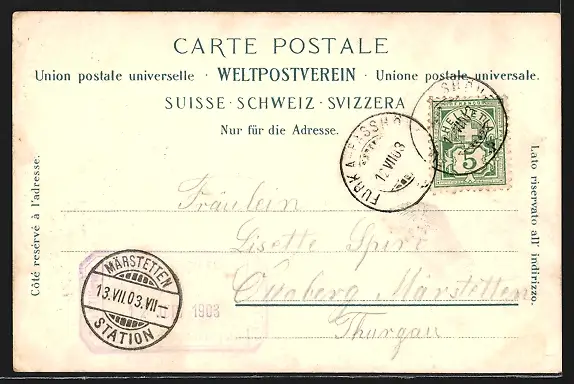 CARTE POSTALE
Union postale universelle · WELTPOSTVEREIN · Unione postale universale.
SUISSE · SCHWEIZ · SVIZZERA
Nur für die Adresse.
Côté reservé à l'adresse.
Lato riservato all' indirizzo.
HELVETIA
5
FURKA-PASSHÖHE
12 VII 03
Fräulein
Lisette
Märstetten
Thurgau
MÄRSTETTEN
13.VII.03.VII-
STATION
1903